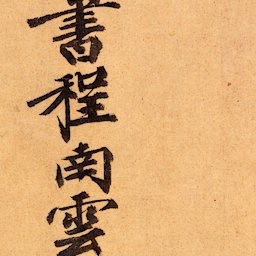 書程南雲